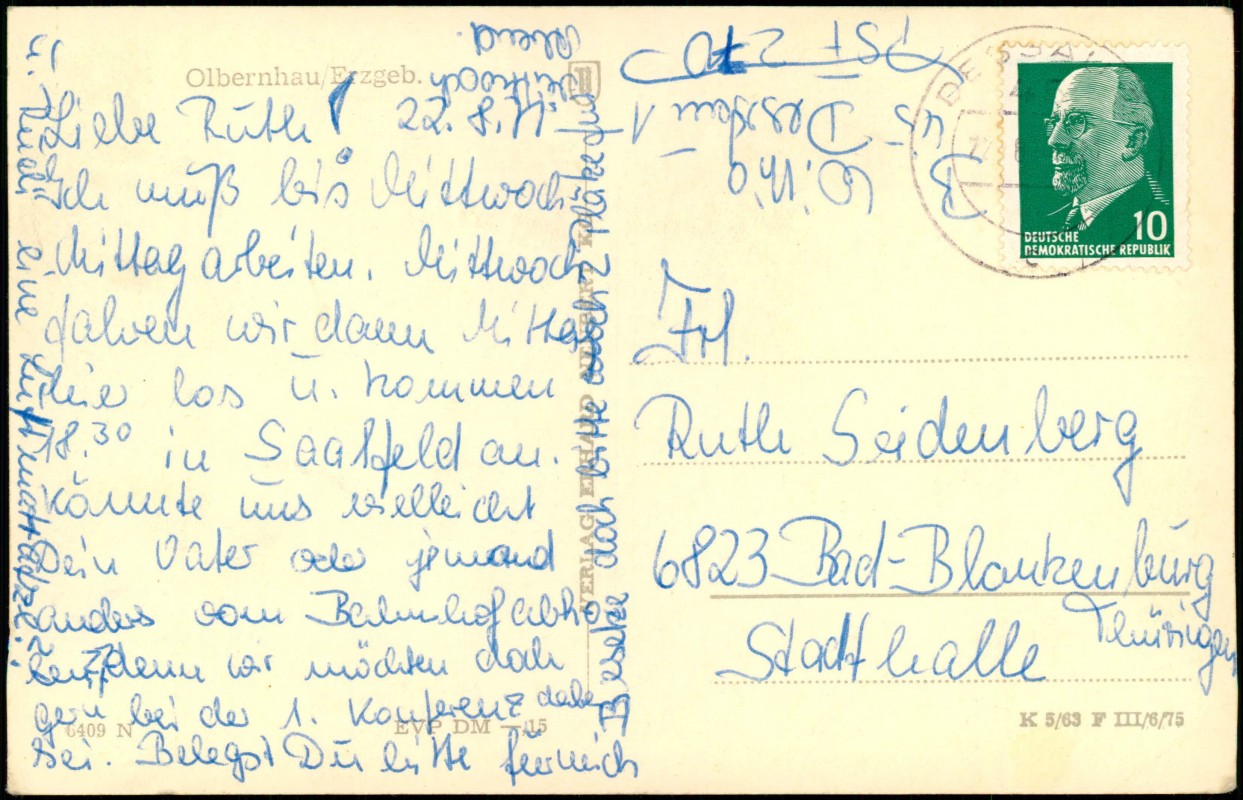 Olbernhau/Erzgeb.
Liebe Ruth! 22.8.71
Ich muß bis Mittwoch
Mittag arbeiten. Mittwoch
fahren wir dann Mittag
hier los u. kommen
18.30 in Saalfeld an.
Könnte uns vielleicht
Dein Vater oder jemand
anders vom Bahnhof abho-
len, denn wir möchten doch
gern bei der 1. Konferenz dabei
sei. Belegst Du bitte für mich
u. Rudi eine Luftmatratze?
Bestelle doch bitte noch 2 Plätze für
Mittwoch
Abend.
6409 N
EVP DM —,15
VERLAG ERHARD NEUBERT K.
B. Dresden 1
PSF 270
DESSAU
DEUTSCHE
DEMOKRATISCHE REPUBLIK
10
Frl.
Ruth Seidenberg
6823 Bad-Blankenburg
Thüringen
Stadthalle
K 5/63 F III/6/75